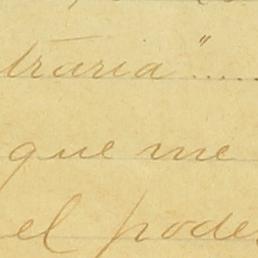 traria".....
que me
el poder